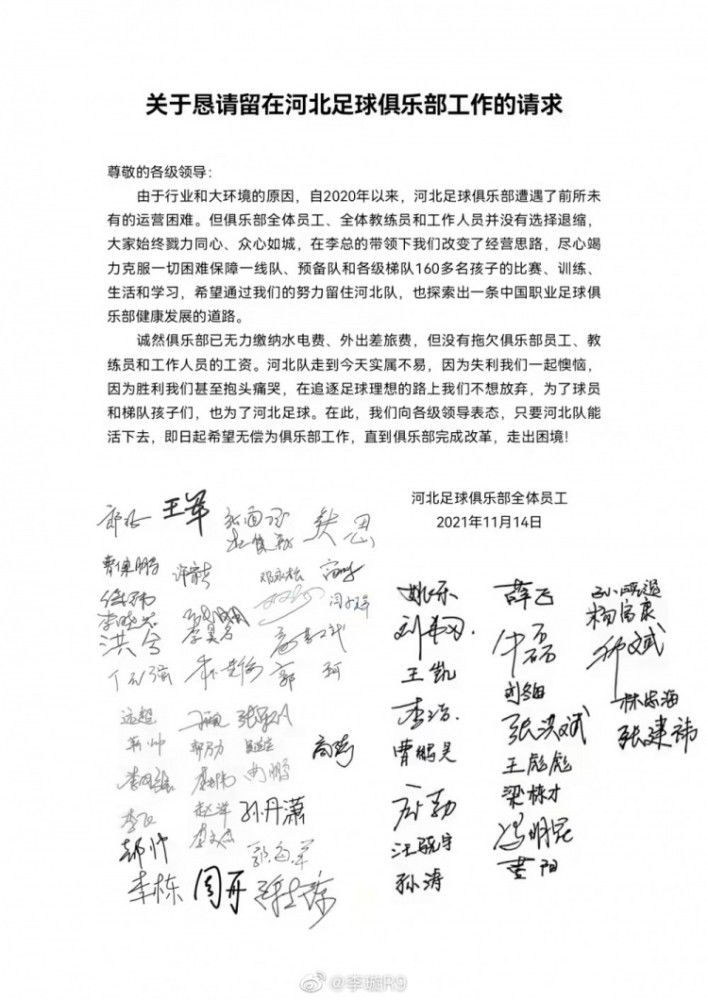 关于恳请留在河北足球俱乐部工作的请求
尊敬的各级领导：
由于行业和大环境的原因，自2020年以来，河北足球俱乐部遭遇了前所未
有的运营困难。但俱乐部全体员工、全体教练员和工作人员并没有选择退缩，
大家始终戮力同心、众心如城，在李总的带领下我们改变了经营思路，尽心竭
力克服一切困难保障一线队、预备队和各级梯队160多名孩子的比赛、训练、
生活和学习，希望通过我们的努力留住河北队，也探索出一条中国职业足球俱
乐部健康发展的道路。
诚然俱乐部已无力缴纳水电费、外出差旅费，但没有拖欠俱乐部员工、教
练员和工作人员的工资。河北队走到今天实属不易，因为失利我们一起懊恼，
因为胜利我们甚至抱头痛哭，在追逐足球理想的路上我们不想放弃，为了球员
和梯队孩子们，也为了河北足球。在此，我们向各级领导表态，只要河北队能
活下去，即日起希望无偿为俱乐部工作，直到俱乐部完成改革，走出困境！
河北足球俱乐部全体员工
2021年11月14日
王军
曹保鹏
洪兮
郭 珂
远超
孙丹潇
李栋 周开
姚乐
王凯
李浩
曹鹏昊
孙涛
薛飞
张洪斌
王彪彪
梁栋才
冯明昆
杨富康
林志海
张建祎
@李璇R9